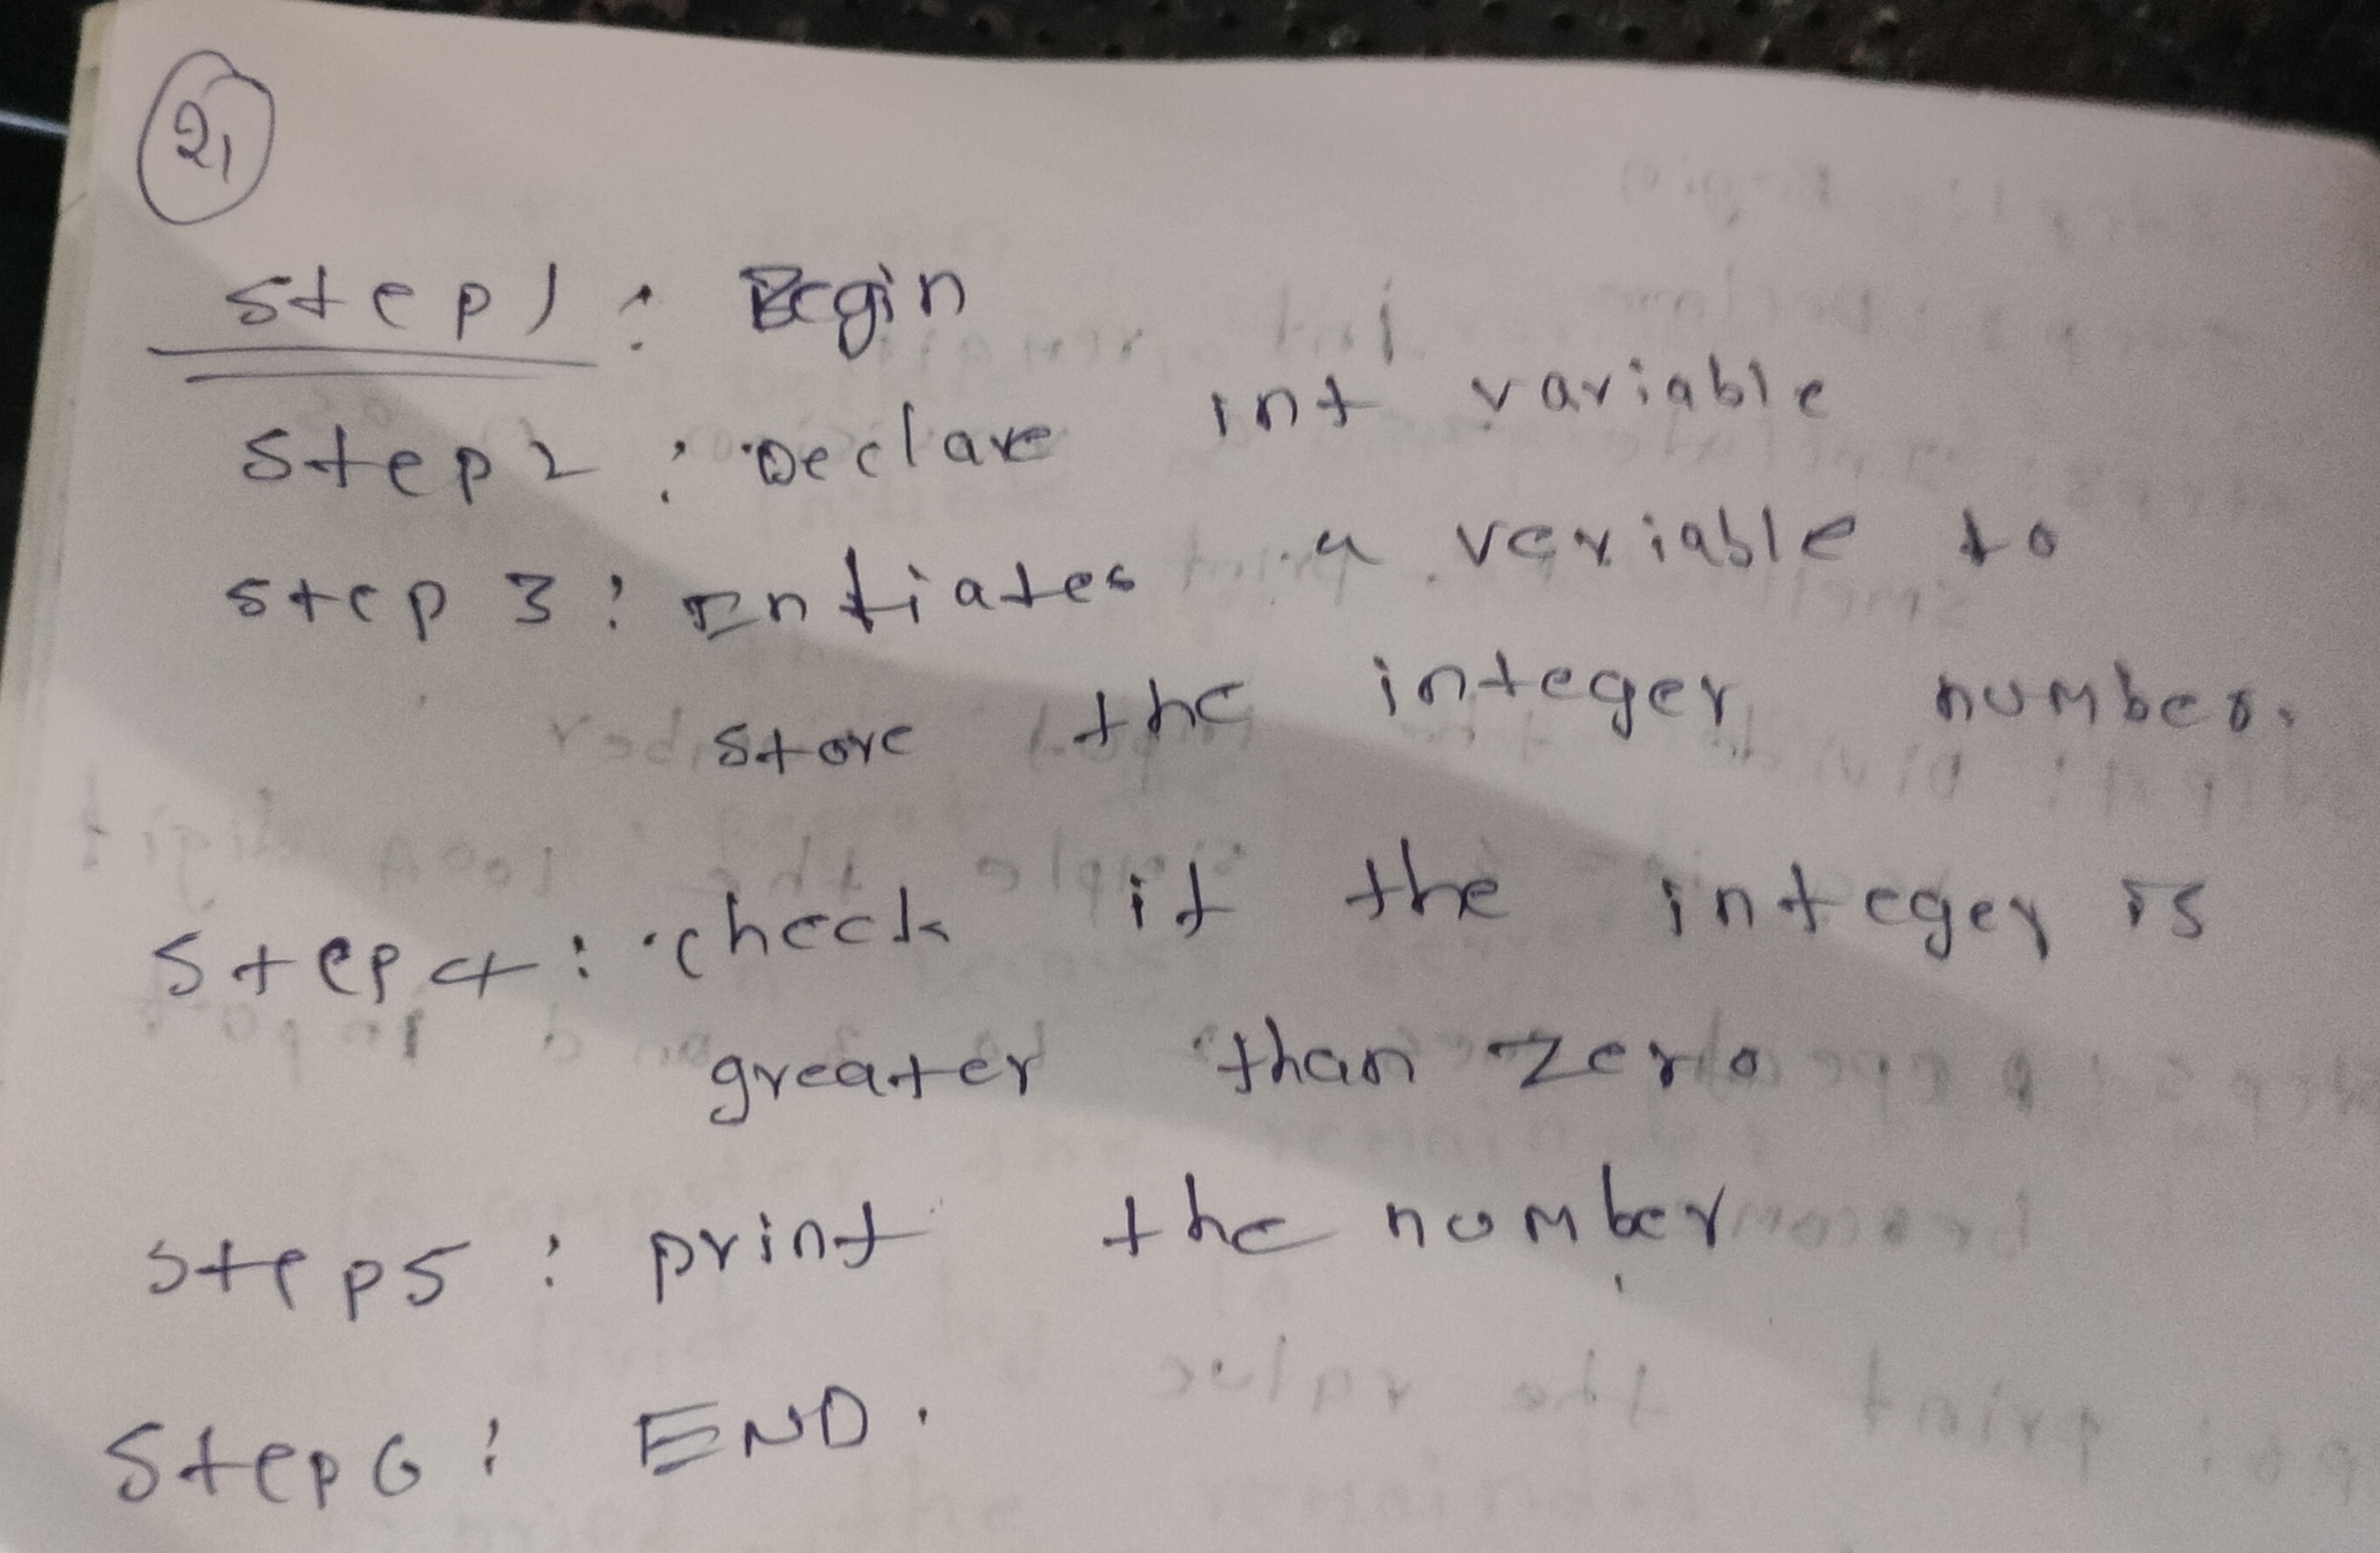 21
Step 1 : Begin
Step 2 : Declare int variable
Step 3 : Intiates a variable to
store the integer number.
Step 4 : check if the integer is
greater than zero
Step 5 : print the number
Step 6 : END.